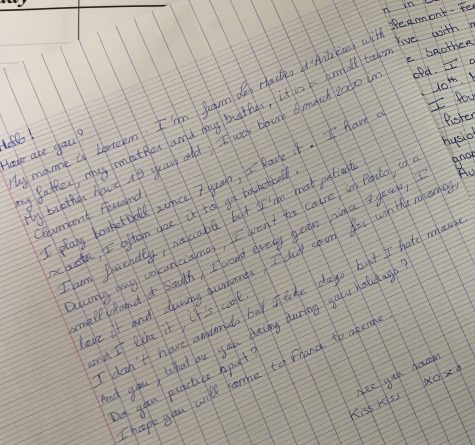 Hello!
How are you?
My name is Loreen. I'm from Les Martres d'Artières with
my father, my mother and my brother, it is a small town
My brother have 15 years old, I was born 6 march 2000 in
Clermont Ferrand.
I play basketball since 7 year, I love it. I have a
scooter, I often use it to go basketball.
I am friendly, sociable but I'm not patiente
During my vacancies, I went to Corse, in Porto, is a
small island at South, I went every years since 7 years, I
love it and during summer I did corn for win the money,
and I like it, it's cool.
I don't have animals but I like dogs but I hate mouse.
And you, what are you doing during your holidays?
Do you practice sport?
I hope you will come to France to
see you soon
Kiss Kiss xoxo
n in
lermont-Fe
live with m
e brother
old. I
10th
I